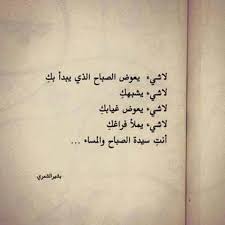 لاشيء يعوض الصباح الذي يبدأ بكِ
لاشيء يشبهكِ
لاشيء يعوض غيابكِ
لاشيء يملأ فراغكِ
أنتِ سيدة الصباح والمساء ...
بشير الشمري